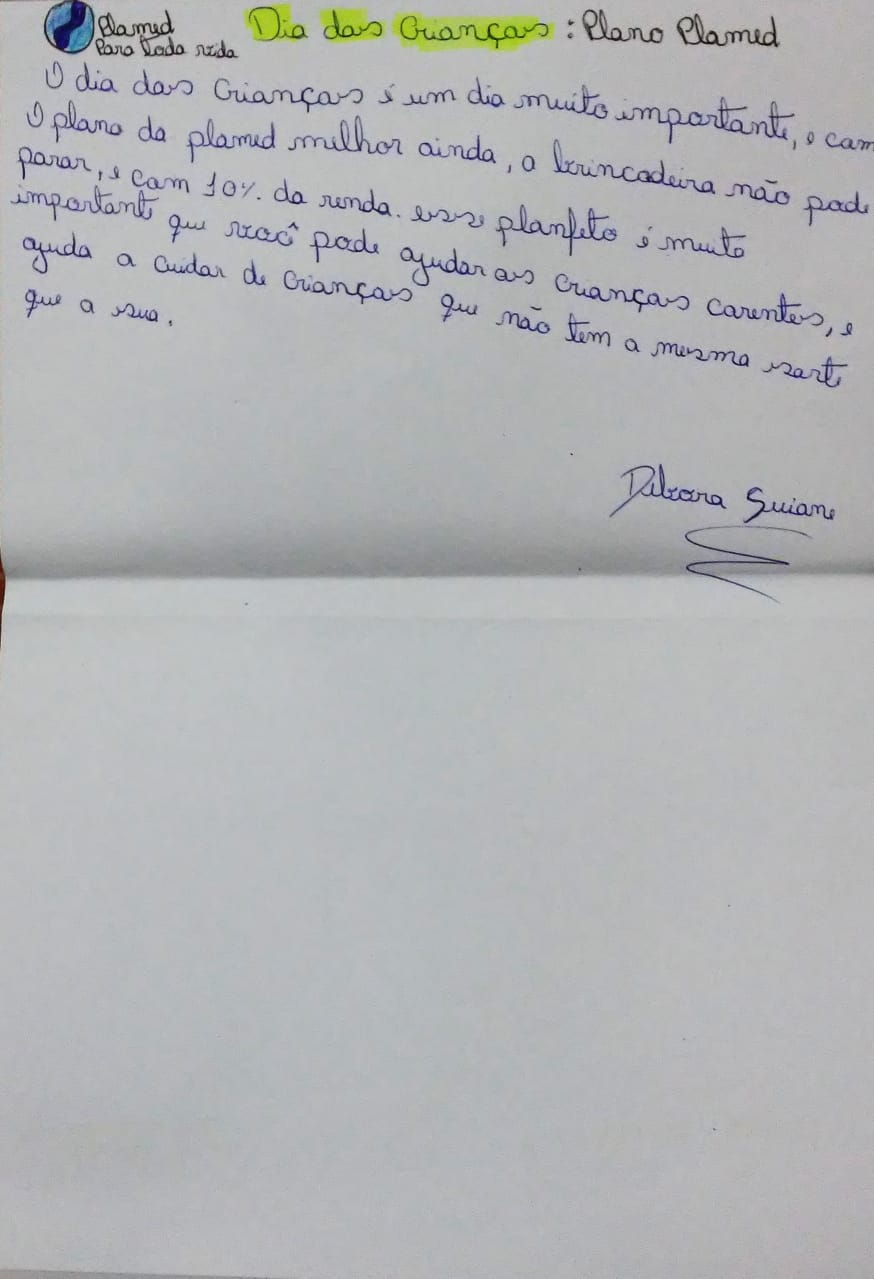 Plamed
Para toda vida
Dia das Crianças : Plano Plamed
O dia das Crianças é um dia muito importante, e com
O plano da plamed melhor ainda, a brincadeira não pode
parar, e com 10% da renda. esse planfeto é muito
importante que você pode ajudar as crianças carentes, e
ajuda a cuidar de crianças que não tem a mesma sorte
que a sua.
Debora Suiane